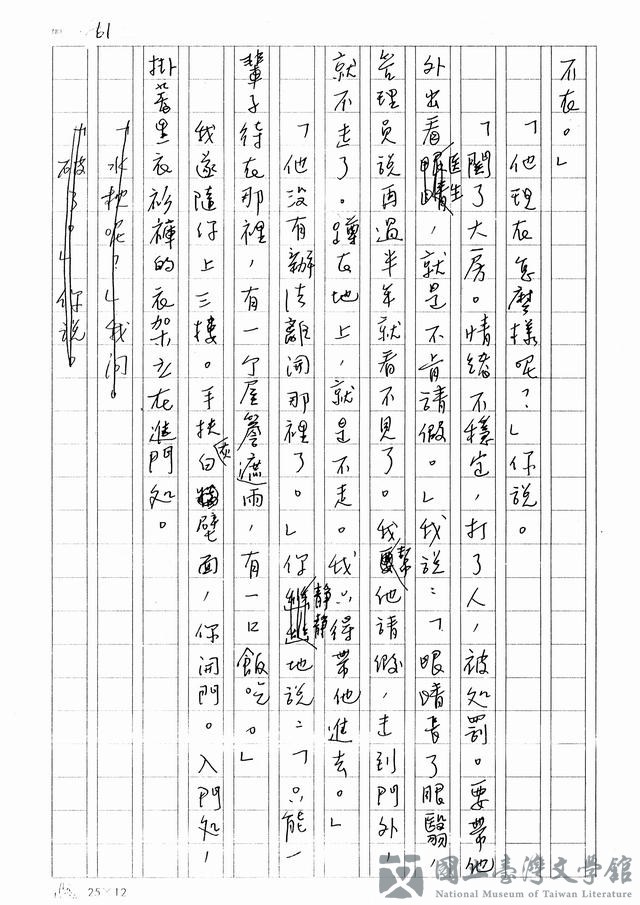 61
不在。」
「他現在怎麼樣呢？」你說。
「關了大房。情緒不穩定，打了人，被处罰。要帶他
外出看眼睛医生，就是不肯請假。」我說：「眼睛長了眼翳，
管理員說再過半年就看不見了。我要幫他請假，走到門外，
就不走了。蹲在地上，就是不走。我只得帶他進去。」
「他沒有辦法離開那裡了。」你靜靜地說：「只能一
輩子待在那裡，有一个屋簷遮雨，有一口飯吃。」
我遂隨你上三樓。手扶白灰壁面，你開門。入門处，
掛著黑衣衫褲的衣架立在進門处。
「水桃呢？」我問。
「破了。」你說。
25×12
國立臺灣文學館
National Museum of Taiwan Literature